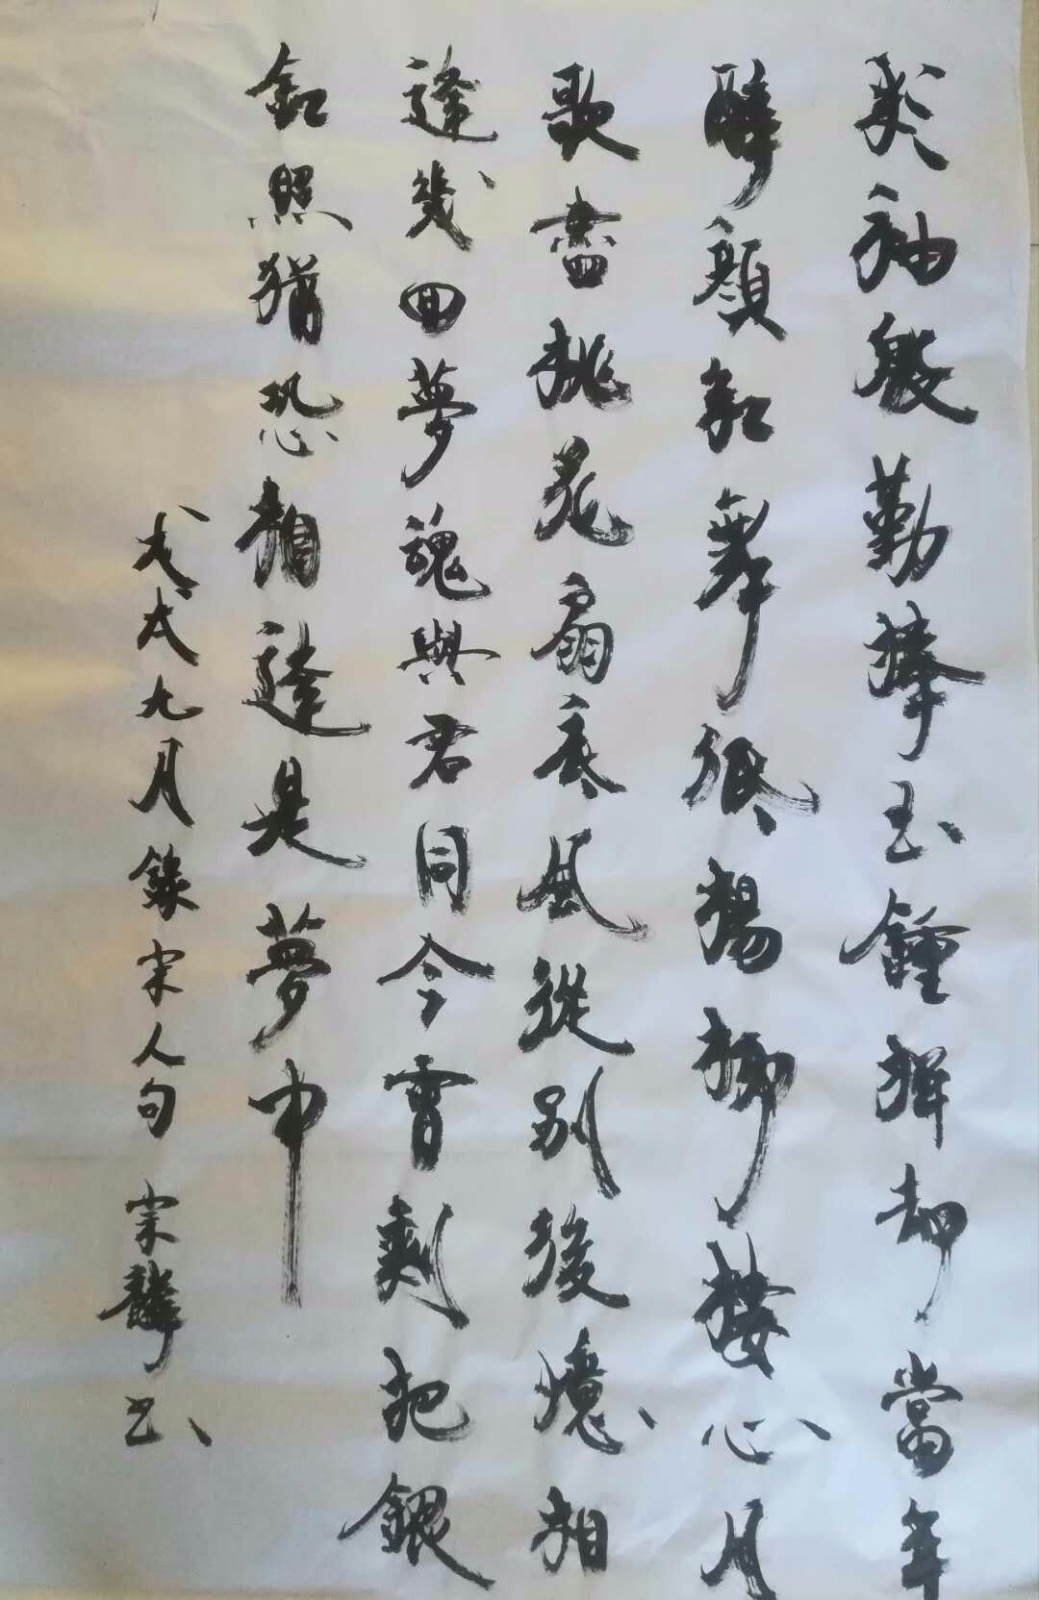 彩袖殷勤捧玉鍾拚却當年
醉顏紅舞低楊柳樓心月
歌盡桃花扇底風從別後憶相
逢幾回夢魂與君同今宵剩把銀
釭照猶恐相逢是夢中
戊戌九月錄宋人句 宋麟书